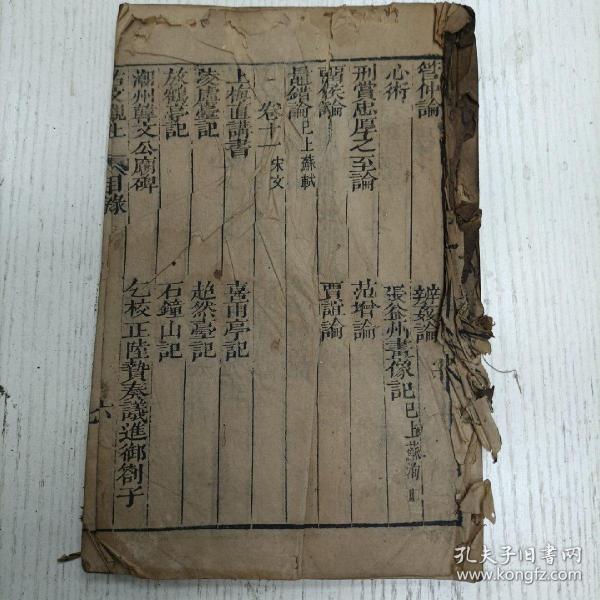 管仲論 辨姦論
心術 張益州畫像記 已上蘇洵
刑賞忠厚之至論 范增論
留侯論 賈誼論
晁錯論 已上蘇軾
卷十一 宋文
上梅直講書 喜雨亭記
凌虛臺記 超然臺記
放鶴亭記 石鐘山記
潮州韓文公廟碑 乞校正陸贄奏議進御劄子
古文觀止 目錄 六
孔夫子旧书网
www.kongfz.com